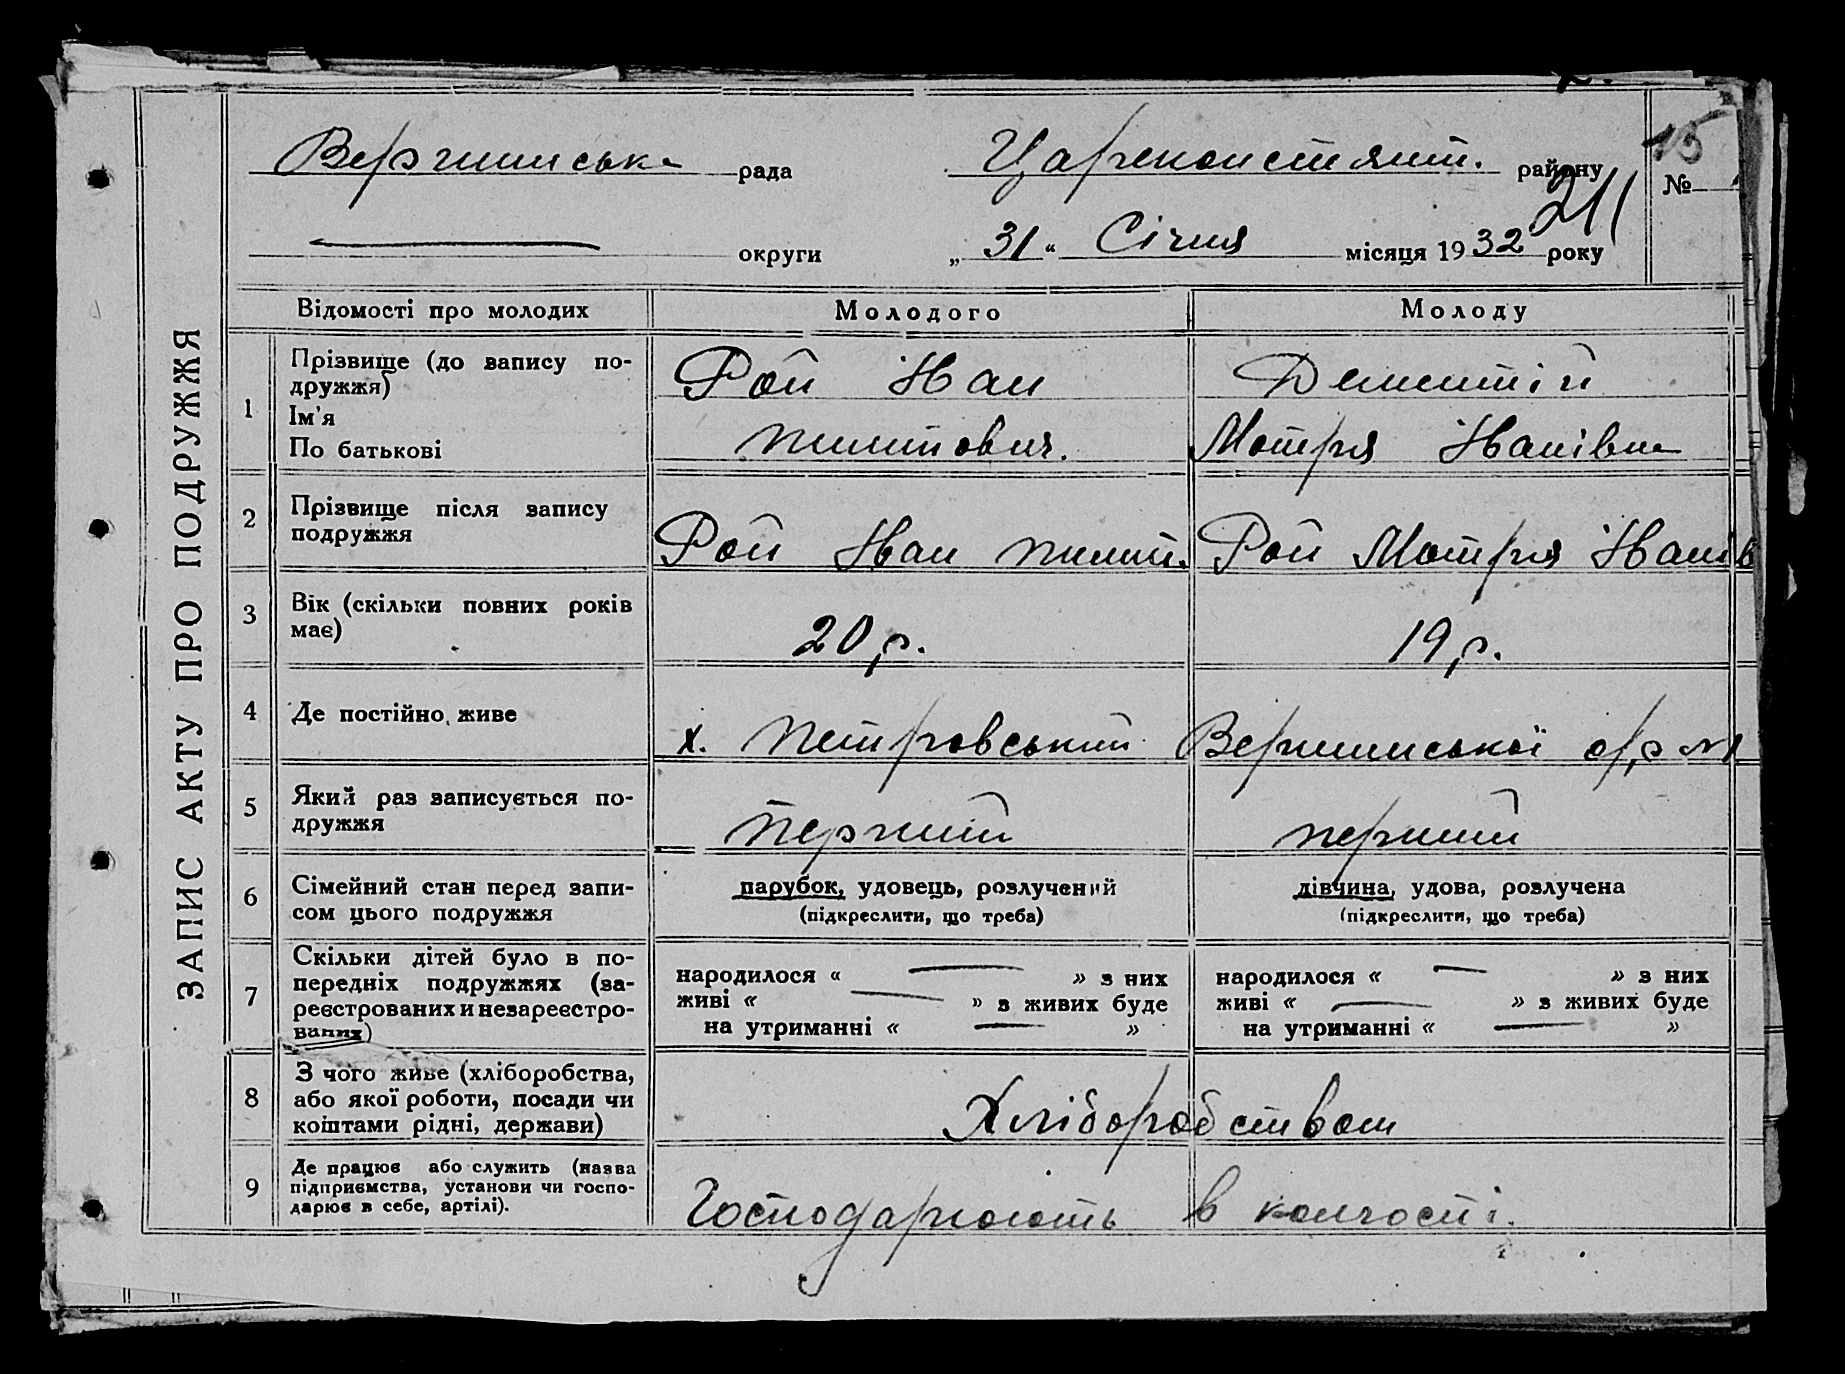 ЗАПИС АКТУ ПРО ПОДРУЖЖЯ
Вершинська рада Царекостянт. району № 15
211
округи „31“ Січня місяця 1932 року
Відомості про молодих Молодого Молоду
1 Прізвище (до запису по-
дружжя)
Ім'я
По батькові
Рой Іван
Пилипович.
Дементій
Мотря Іванівна
2 Прізвище після запису
подружжя
Рой Іван Пилип.
Рой Мотря Іванів
3 Вік (скільки повних років
має)
20 р.
19 р.
4 Де постійно живе
х. Петровський Вершинської с/р
5 Який раз записується по-
дружжя
Перший
перший
6 Сімейний стан перед запи-
сом цього подружжя
парубок, удовець, розлучений
(підкреслити, що треба)
дівчина, удова, розлучена
(підкреслити, що треба)
7 Скільки дітей було в по-
передніх подружжях (за-
реєстрованих и незареєстро-
ваних)
народилося « — » з них
живі « — » з живих буде
на утриманні « — »
народилося « — » з них
живі « — » з живих буде
на утриманні « — »
8 З чого живе (хліборобства,
або якої роботи, посади чи
коштами рідні, держави)
Хліборобством
9 Де працює або служить (назва
підприємства, установи чи госпо-
дарює в себе, артілі).
Господарюють в колгоспі.